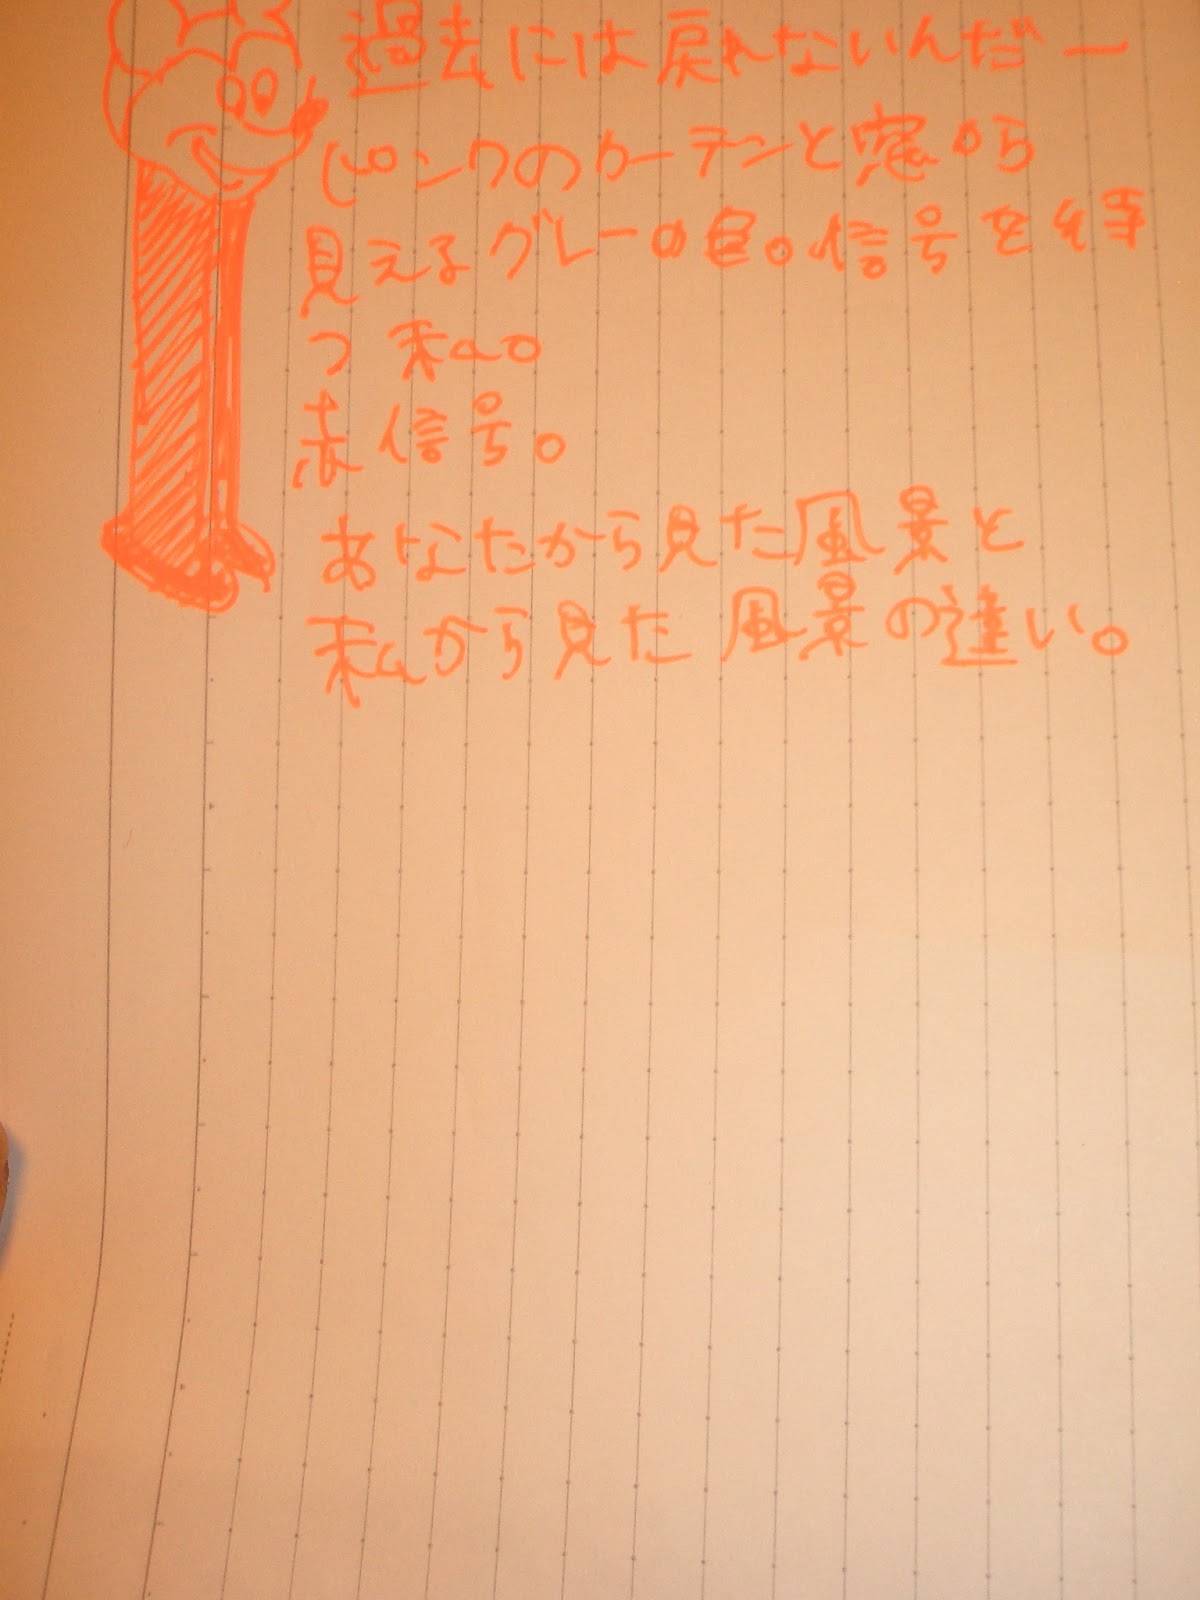 過去には戻れないんだー
ピンクのカーテンと窓から
見えるグレーの 。信号を待
つ 私。
赤信号。
あなたから見た風景と
私から見た風景の違い。